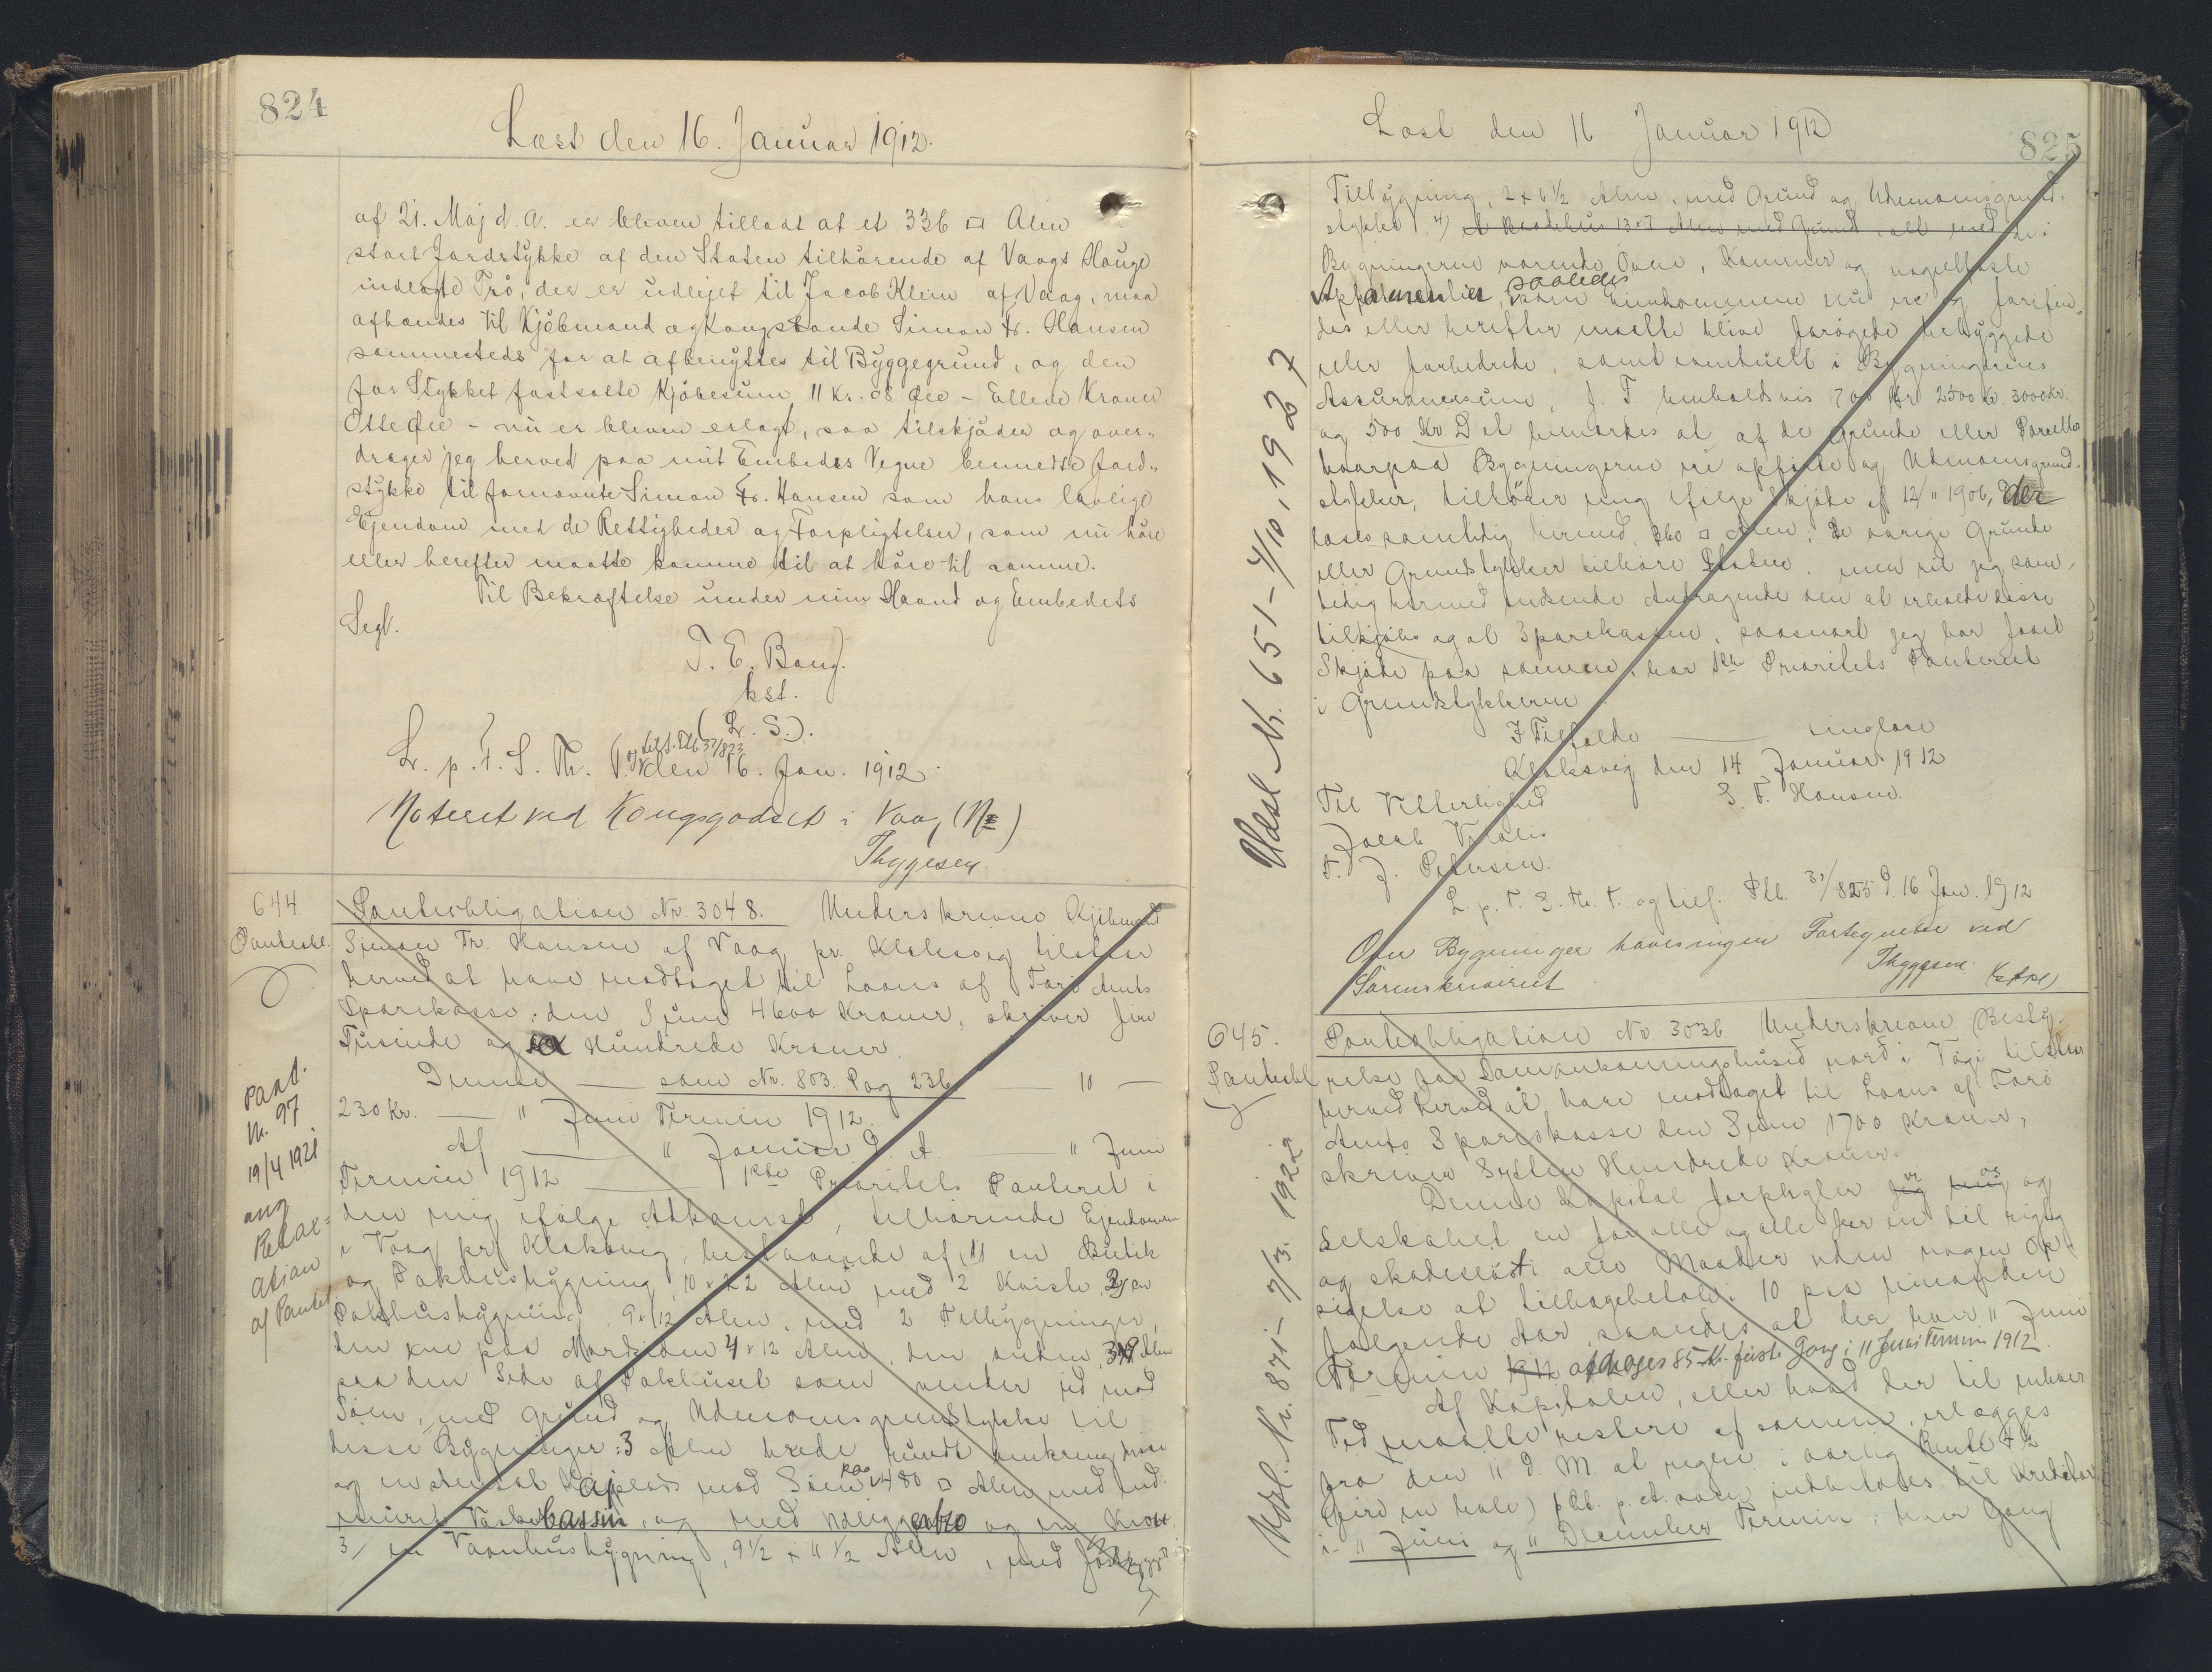 824
Læst den 16. Januar 1912.
af 21. Maj d. A. er bleven tilladt at et 336 □ Alen
stort Jordstykke af den Staten tilhörende af Vaags Hauge
indlagte Trö, der er udlejet til Jacob Klein af Vaag, maa
afhændes til Kjöbmand og Kongsbonde Simon Fr. Hansen
sammesteds for at afbenyttes til Byggegrund, og den
for Stykket fastsatte Kjöbesum 11 Kr. 08 Øre - Elleve Kroner
Otte Øre - nu er bleven erlagt, saa tilskjöder og over-
drager jeg herved paa mit Embedes Vegne bemeldte Jord-
stykke til fornævnte Simon Fr. Hansen som hans lovlige
Ejendom med de Rettigheder og Forpligtelser, som nu höre
eller herefter maatte komme til at höre til samme.
Til Bekræftelse under min Haand og Embedets
Segl.
P. E. Bang.
kst.
(L. S.)
L. p. F. S. Th. T. og den 16. Jan. 1912.
Noteret ved Kongsgodset i Vaag
Thygesen
644
Panteobl.
Panteobligation Nr. 3048. Underskrevne Kjöbmand
Simon Fr. Hansen af Vaag pr. Klaksvig tilstaar
herved at have modtaget til Laans af Färö Amts
Sparekasse den Sum 4600 Kroner, skriver fire
Tusinde og sex Hundrede Kroner.
Denne — som Nr. 803. Pag 236 — 10 —
230 Kr. — 11 Juni Termin 1912.
Af — 11 Januar d. A. — 11 Juni
Termin 1912 — 1ste Prioritets Panteret i
den mig ifölge Adkomst, tilhörende Ejendom
i Vaag pr. Klaksvig, bestaaende af 1) en Butik
og Pakhusbygning 10 x 22 Alen med 2 Kviste, 2) en
Pakhusbygning 9 x 12 Alen, med 2 Tilbygninger,
den ene paa Nordsiden 4 x 12 Alen, den anden 3x9 Alen
paa den Side af Pakhuset som vender ud mod
Söen, med Grund og Udenomsgrundstykke til
disse Bygninger: 3 Alen brede rundt omkring disse
og en Kajplads mod Söen paa 480 □ Alen med ind-
muret Vaskebassin, og med
3, en Vaanhusbygning, 9½ x 11½ Alen, med
Pant.
Nr. 97
19/4 1921
ang
Relax=
ation
af Pantet
Læst den 16 Januar 1912
825
Tilbygning, 2 x 6½ Alen, med Grund og Udenomsgrund-
stykke, 4) et Baadehus 13x7 Alen med Grund, alt med de i
Bygningerne værende Ovne, Kaminer og nagelfaste
Appartinentier saaledes som Ejendommene nu ere og forefin-
des eller herefter maatte blive forögede bebyggede
eller forbedrede, samt eventuelt i Bygningernes
Assurancesum, f. T. henholdsvis 700 Kr 2500 Kr. 3000 Kr.
og 500 Kr. Det bemærkes at af de Grunde eller Parceller
hvorpaa Bygningerne ere opförte og Udenomsgrund-
stykker, tilhörer mig ifölge Skjöde af 12/11 1906, der
læses samtidig hermed, 360 □ Alen; de övrige Grunde
eller Grundstykker tilhöre Staten, men vil jeg sam-
tidig hermed indsende Andragende om at erholde disse
tilkjöbs og at Sparekassen, saasnart jeg har faaet
Skjöde paa samme, har 1ste Prioritets Panteret
i Grundstykkerne
I Tilfælde —
Klaksvig den 14 Januar 1912
Til Vitterlighed
S. F. Hansen.
Jacob
F. J. Petersen.
L. p. F. S. Th. T. og tilf. Pbl. 32/825 d. 16 Jan. 1912
Om Bygninger haves ingen Fortegnelse ved
Sorenskriveriet
Thygesen
Udsl. Nr. 651 - 4/10, 1927
645.
Panteobl
Panteobligation Nr 3036 Underskrevne Besty-
relse for Samankomingshúsið norð i Vági tilstaar
herved at have modtaget til Laans af Färö
Amts Sparekasse den Sum 1700 Kroner,
skriver Sytten Hundrede Kroner.
Denne Kapital forpligter jeg vi mig os og
Selskabet en for alle og alle for en til rigtig
og skadeslöst i alle Maader uden nogen Op-
sigelse at tilbagebetale i 10 paa hinanden
fölgende Aar, saaledes at der hver 11 Juni
Termin 1912 afdrages 85 Kr. förste Gang i 11 Juni Termin 1912.
Af Kapitalen, eller hvad der til enhver
Tid maatte restere af samme, erlægges
fra den 11 d. M. at regne i aarlig Rente 4½
(fire en halv) pCt. p. A. som indbetales til Kreditor
i 11 Juni og 11 December Termin, hver Gang
Udsl. Nr. 871 - 7/3. 1922